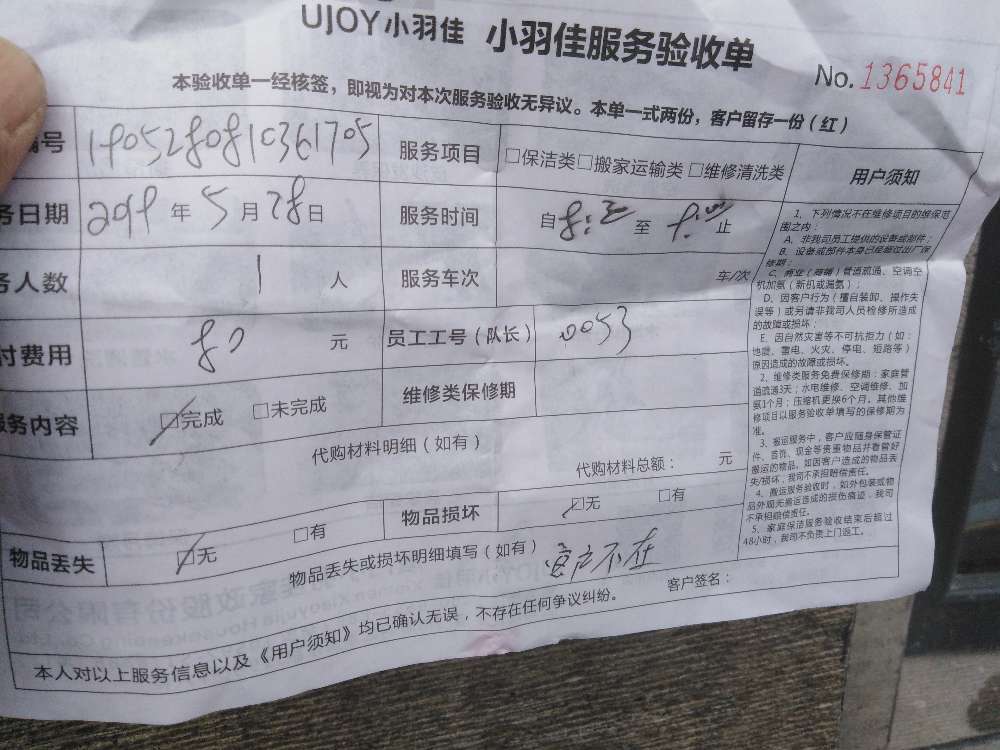 UJOY小羽佳 小羽佳服务验收单
No. 1365841
本验收单一经核签，即视为对本次服务验收无异议。本单一式两份，客户留存一份（红）
编号 1905280810361705 服务项目 □保洁类□搬家运输类 □维修清洗类 用户须知
务日期 2019 年 5 月 28 日 服务时间 自 8: 至 9:00 止
务人数 1 人 服务车次 车/次
付费用 80 元 员工工号（队长） 0053
服务内容 ☑完成 □未完成 维修类保修期
代购材料明细（如有）
代购材料总额： 元
物品丢失 ☑无 □有 物品损坏 ☑无 □有
物品丢失或损坏明细填写（如有） 客户不在
本人对以上服务信息以及《用户须知》均已确认无误，不存在任何争议纠纷。 客户签名：
1、下列情况不在维修项目的维保范
围之内：
A、非我司员工提供的设备或部件；
B、设备或部件本身已经超过出厂保
修期；
C、商业（商铺）管道疏通、空调空
机加氨（新机或漏氨）；
D、因客户行为（擅自装卸、操作失
误等）或另请非我司人员检修所造成
的故障或损坏；
E、因自然灾害等不可抗拒力（如：
地震、雷电、火灾、停电、短路等）
原因造成的故障或损坏。
2、维修类服务免费保修期：家庭管
道疏通3天；水电维修、空调维修、加
氨1个月；压缩机更换6个月。其他维
修项目以服务验收单填写的保修期为
准。
3、搬运服务中，客户应随身保管证
件、首饰、现金等贵重物品并看管好
搬运的物品。如因客户造成的物品丢
失/损坏，我司不承担赔偿责任。
4、搬运服务验收时，如外包装或物
品外观无搬运造成的损伤痕迹，我司
不承担赔偿责任。
5、家庭保洁服务验收结束后超过
48小时，我司不负责上门返工。